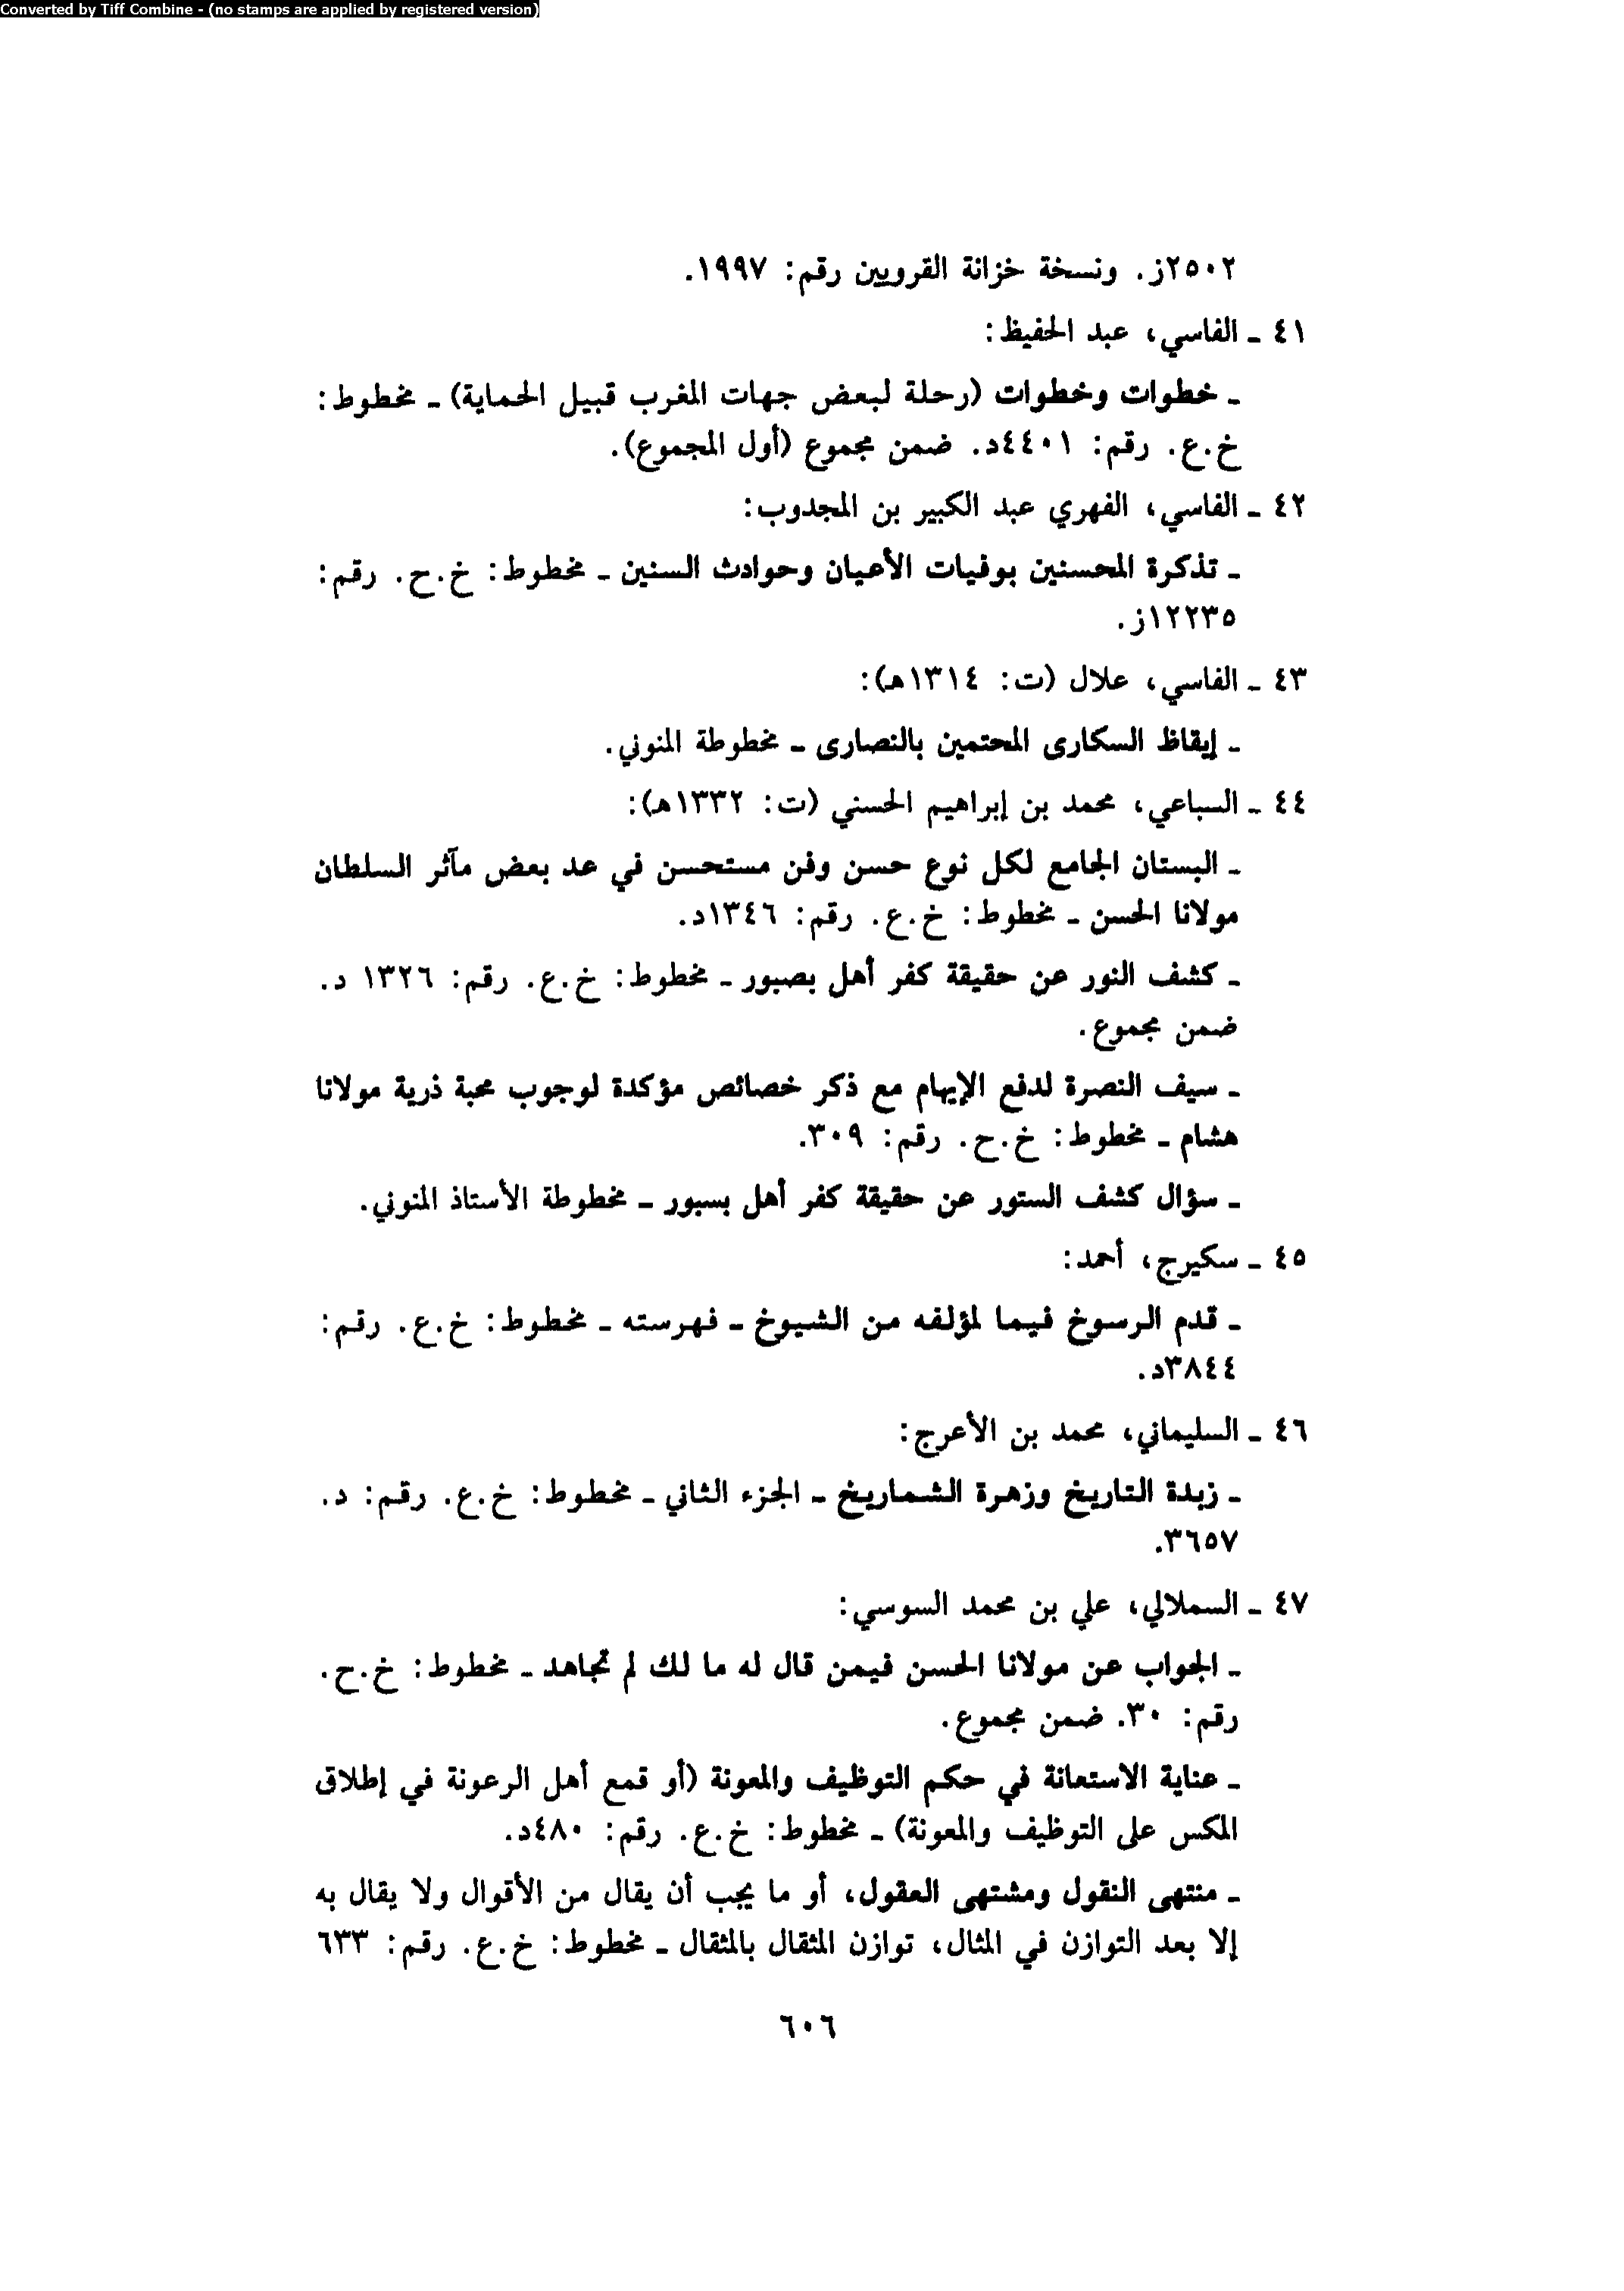 Converted by Tiff Combine - (no stamps are applied by registered version)
٢٥٠٢ز. ونسخة خزانة القرويين رقم: ١٩٩٧.
٤١ ـ الفاسي، عبد الحفيظ:
ـ خطوات وخطوات (رحلة لبعض جهات المغرب قبيل الحماية) ـ مخطوط:
خ.ع. رقم: ٤٤٠١د. ضمن مجموع (أول المجموع).
٤٢ ـ الفاسي، الفهري عبد الكبير بن المجدوب:
ـ تذكرة المحسنين بوفيات الأعيان وحوادث السنين ـ مخطوط: خ.ح. رقم:
١٢٢٣٥ز.
٤٣ ـ الفاسي، علال (ت: ١٣١٤هـ):
ـ إيقاظ السكارى المحتمين بالنصارى ـ مخطوطة المنوني.
٤٤ ـ السباعي، محمد بن إبراهيم الحسني (ت: ١٣٣٢هـ):
ـ البستان الجامع لكل نوع حسن وفن مستحسن في عد بعض مآثر السلطان
مولانا الحسن ـ مخطوط: خ.ع. رقم: ١٣٤٦د.
ـ كشف النور عن حقيقة كفر أهل بصبور ـ مخطوط: خ.ع. رقم: ١٣٢٦ د.
ضمن مجموع.
ـ سيف النصرة لدفع الإيهام مع ذكر خصائص مؤكدة لوجوب محبة ذرية مولانا
هشام ـ مخطوط: خ.ح. رقم: ٣٠٩.
ـ سؤال كشف الستور عن حقيقة كفر أهل بسبور ـ مخطوطة الأستاذ المنوني.
٤٥ ـ سكيرج، أحمد:
ـ قدم الرسوخ فيما لمؤلفه من الشيوخ ـ فهرسته ـ مخطوط: خ.ع. رقم:
٣٨٤٤د.
٤٦ ـ السليماني، محمد بن الأعرج:
ـ زبدة التاريخ وزهرة الشماريخ ـ الجزء الثاني ـ مخطوط: خ.ع. رقم: د.
٣٦٥٧.
٤٧ ـ السملالي، علي بن محمد السوسي:
ـ الجواب عن مولانا الحسن فيمن قال له ما لك لم تجاهد ـ مخطوط: خ.ح.
رقم: ٣٠. ضمن مجموع.
ـ عناية الاستعانة في حكم التوظيف والمعونة (أو قمع أهل الرعونة في إطلاق
المكس على التوظيف والمعونة) ـ مخطوط: خ.ع. رقم: ٤٨٠د.
ـ منتهى النقول ومشتهى العقول، أو ما يجب أن يقال من الأقوال ولا يقال به
إلا بعد التوازن في المثال، توازن المثقال بالمثقال ـ مخطوط: خ.ع. رقم: ٦٣٣
٦٠٦